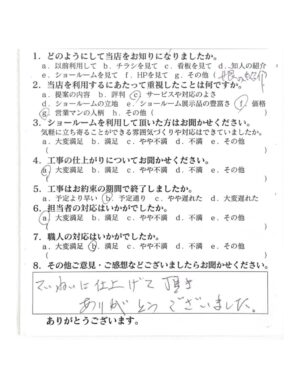 1. どのようにして当店をお知りになりましたか。
a. 以前利用して b. チラシを見て c. 看板を見て d. 知人の紹介
e. ショールームを見て f. HPを見て g. その他（娘の紹介
2. 当店を利用するにあたって重視したことは何ですか。
a. 提案の内容 b. 評判 c. サービスや対応のよさ
d. ショールームの立地 e. ショールーム展示品の豊富さ f. 価格
g. 営業マンの人柄 h. その他（ ）
3. ショールームを利用して頂いた方はお聞かせください。
気軽に立ち寄ることができる雰囲気づくりや対応はできていましたか。
a. 大変満足 b. 満足 c. やや不満 d. 不満 e. その他
( )
4. 工事の仕上がりについてお聞かせください。
a. 大変満足 b. 満足 c. やや不満 d. 不満 e. その他
( )
5. 工事はお約束の期間で終了しましたか。
a. 予定より早い b. 予定通り c. やや遅れた d. 大変遅れた
6. 担当者の対応はいかがでしたか。
a. 大変満足 b. 満足 c. やや不満 d. 不満 e. その他
( )
7. 職人の対応はいかがでしたか。
a. 大変満足 b. 満足 c. やや不満 d. 不満 e. その他
( )
8. その他ご意見・ご感想などございましたらお聞かせください。
ていねいに仕上げて頂き
ありがとうございました。
ありがとうございます。